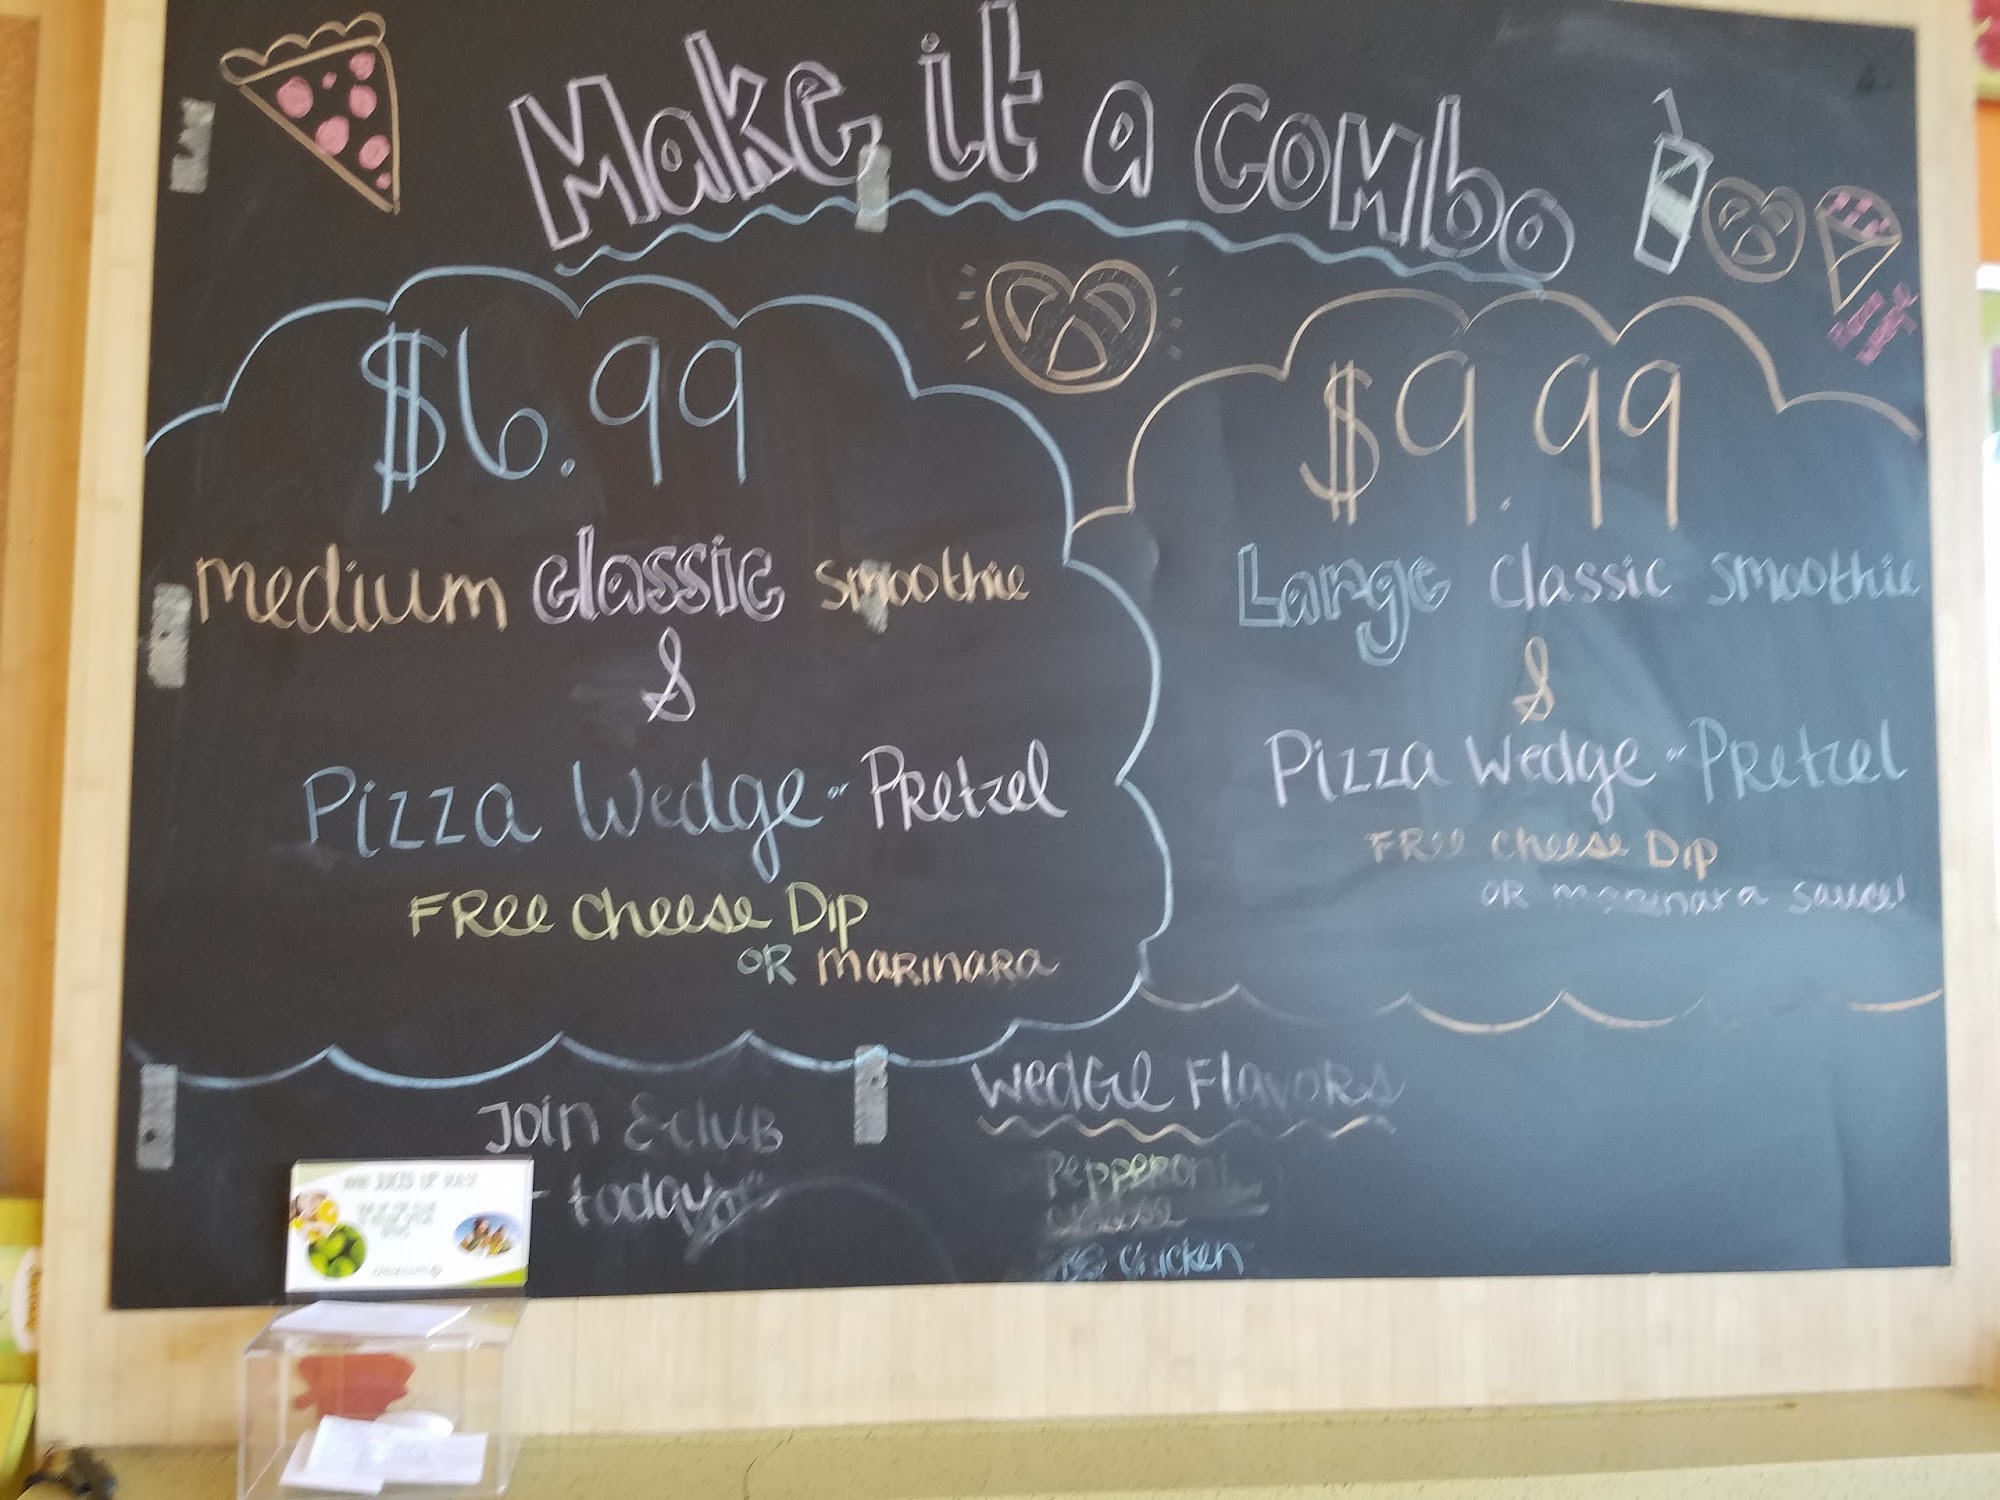 Make it a Combo
$6.99
medium classic smoothie
&
Pizza Wedge or Pretzel
FRee cheese Dip
OR maRinaRa
$9.99
Large classic smoothie
&
Pizza Wedge or Pretzel
FRee cheese Dip
OR marinara sauce!
Join Eclub
today
Wedge Flavors
Pepperoni
cheese
BBQ chicken